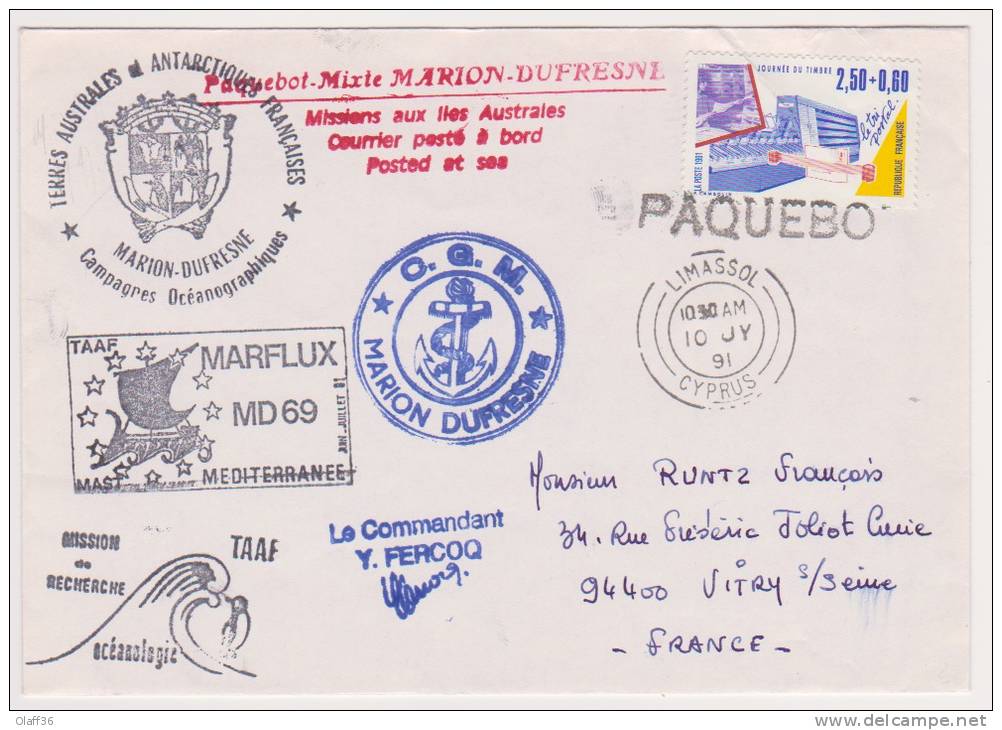 TERRES AUSTRALES et ANTARCTIQUES FRANÇAISES
MARION-DUFRESNE
Campagnes Océanographiques
Paquebot-Mixte MARION-DUFRESNE
Missions aux Iles Australes
Courrier posté à bord
Posted at sea
JOURNÉE DU TIMBRE
2,50+0,60
le tri postal.
RÉPUBLIQUE FRANÇAISE
LA POSTE 1991
PAQUEBO
LIMASSOL
1030 AM
10 JY
91
CYPRUS
C. G. M.
MARION DUFRESNE
TAAF
MARFLUX
MD 69
JUIN-JUILLET 91
MAST
MEDITERRANEE
MISSION
de
RECHERCHE
TAAF
océanologie
Le Commandant
Y. FERCOQ
Monsieur RUNTZ François
34. Rue Frédéric Joliot Curie
94400 VITRY s/Seine
- FRANCE -
Olaff36
www.delcampe.net